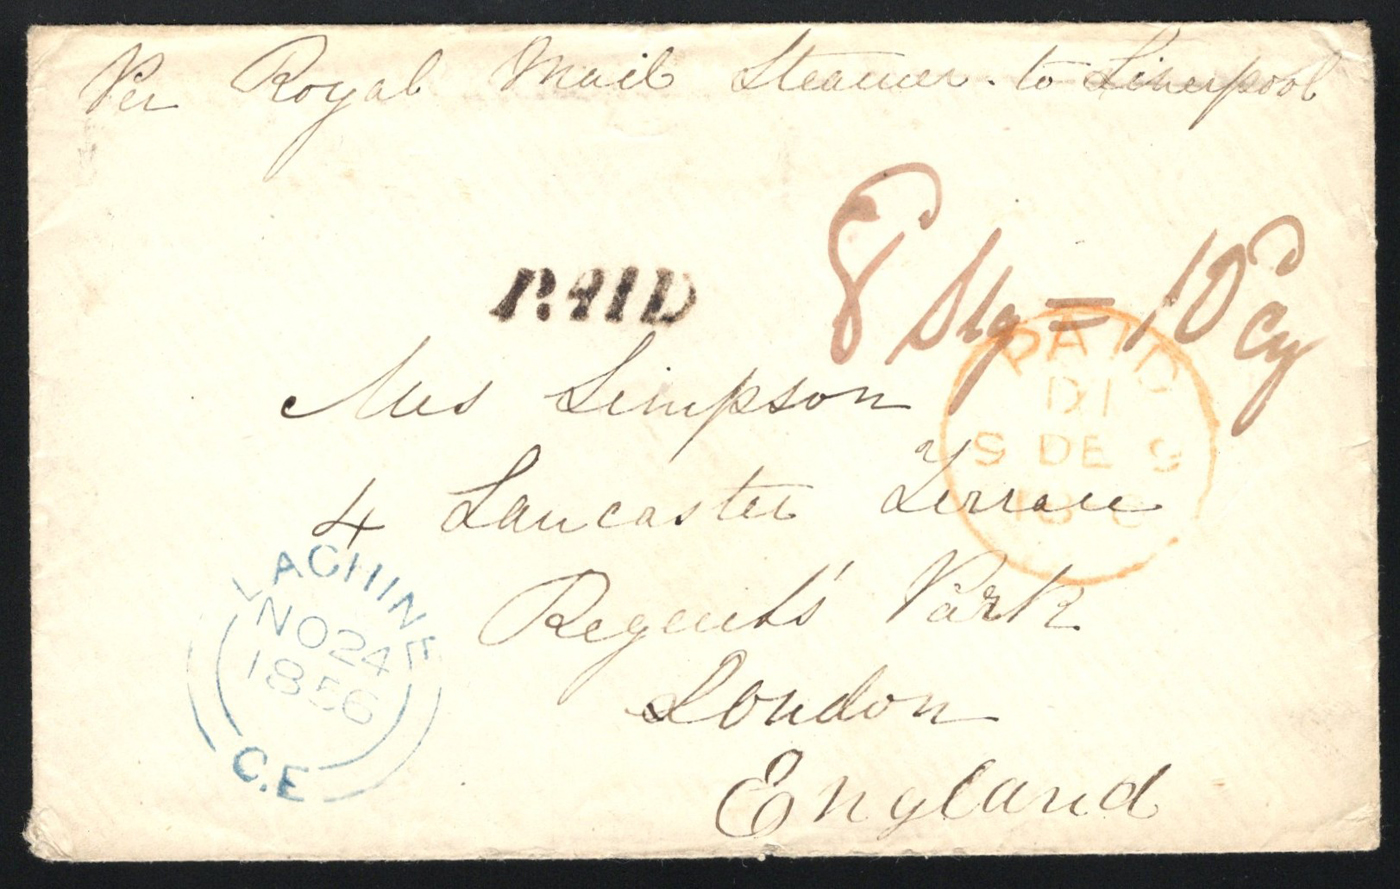 Per Royal Mail Steamer. to Liverpool
8d Stg = 10d Cy
PAID
PAID
D1
S DE 9
Mrs Simpson
4 Lancaster Terrace
Regent's Park
London
England
LACHINE
NO 24
1856
C.E